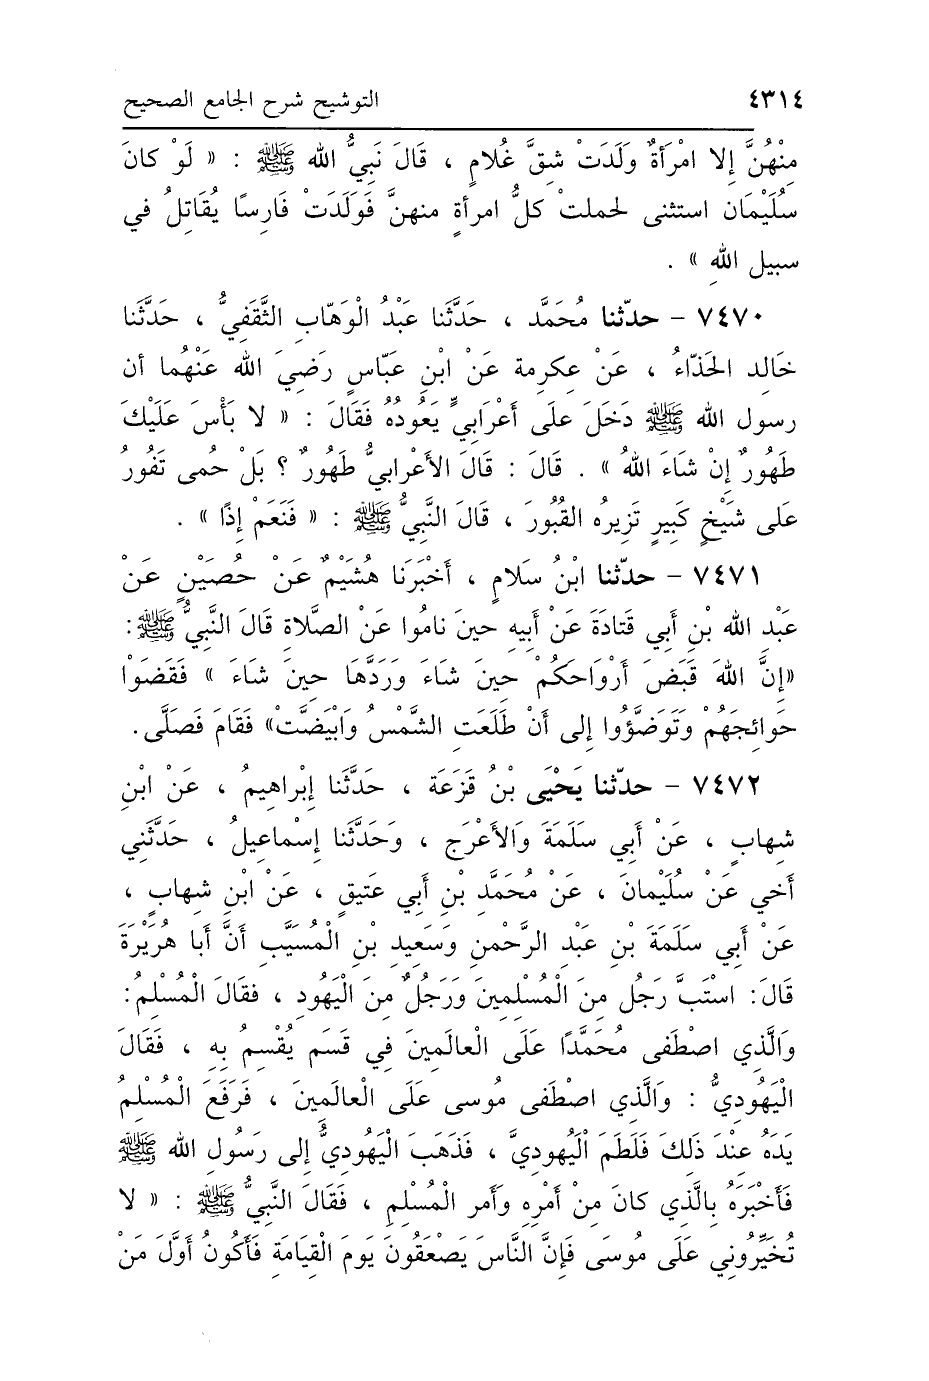 ٤٣١٤ التوشيح شرح الجامع الصحيح
مِنْهُنَّ إلا امْرَأةٌ ولَدَتْ شِقَّ غُلامٍ ، قَالَ نَبِيُّ الله ﷺ : « لَوْ كانَ
سُلَيْمَان استثنى لحملتْ كلُّ امرأةٍ منهنَّ فَوَلَدَتْ فَارِسًا يُقَاتِلُ في
سبيل اللهِ » .
٧٤٧٠ - حدّثنا مُحَمَّد ، حَدَّثَنا عَبْدُ الْوَهّابِ الثَّقَفِيُّ ، حَدَّثَنا
خَالِد الحَذّاءُ ، عَنْ عِكرِمة عَنْ ابْنِ عَبّاسٍ رَضِيَ الله عَنْهُما أن
رسول الله ﷺ دَخَلَ على أعْرَابِيٍّ يَعُودُهُ فَقَالَ : « لا بَأْسَ عَلَيْكَ
طَهُورٌ إنْ شَاءَ اللهُ » . قَالَ : قَالَ الأعْرابيُّ طَهُورٌ ؟ بَلْ حُمى تَفُورُ
عَلى شَيْخٍ كَبِيرٍ تزِيرُه القُبُورَ ، قَالَ النَّبِيُّ ﷺ : « فَنَعَمْ إذًا » .
٧٤٧١ - حدّثنا ابْنُ سَلَامٍ ، أَخْبَرَنَا هُشَيْمٌ عَنْ حُصَيْنٍ عَنْ
عَبْدِ الله بْنِ أبي قَتَادَةَ عَنْ أبِيهِ حِينَ نامُوا عَنْ الصَّلاةِ قَالَ النَّبِيُّ ﷺ:
«إنَّ اللهَ قَبَضَ أرْوَاحَكُمْ حِينَ شَاءَ وَرَدَّهَا حِينَ شَاءَ » فَقَضَوْا
حَوائِجَهُمْ وَتَوَضَّؤُوا إلى أنْ طَلَعَتِ الشَّمْسُ وَابْيَضَّتْ» فَقَامَ فَصَلَّى.
٧٤٧٢ - حدّثنا يَحْيَى بْنُ قَزَعَة ، حَدَّثَنا إبْراهِيمُ ، عَنْ ابْنِ
شِهابٍ ، عَنْ أبي سَلَمَةَ وَالأعْرَج ، وَحَدَّثَنا إسْماعِيلُ ، حَدَّثَني
أخي عَنْ سُلَيْمانَ ، عَنْ مُحَمَّدِ بْنِ أبي عَتِيقٍ ، عَنْ ابْنِ شِهابٍ ،
عَنْ أبي سَلَمَةَ بْنِ عَبْدِ الرَّحْمنِ وَسَعِيدِ بْنِ الْمُسَيَّبِ أنَّ أبا هُرَيْرَةَ
قَالَ: اسْتَبَّ رَجُل مِنَ الْمُسْلِمِينَ وَرَجُلٌ مِنَ الْيَهُودِ ، فقَالَ الْمُسْلِمُ:
وَالَّذِي اصْطَفى مُحَمَّدًا عَلَى الْعالَمِينَ فِي قَسَمٍ يُقْسِمُ بِهِ ، فَقَالَ
الْيَهُودِيُّ : وَالَّذِي اصْطَفَى مُوسى عَلَى الْعالَمِينَ ، فَرَفَعَ الْمُسْلِمُ
يَدَهُ عِنْدَ ذَلِكَ فَلَطَمَ الْيَهُودِيَّ ، فَذَهَبَ الْيَهُودِيُّ إلى رَسُولِ الله ﷺ
فَأخْبَرَهُ بِالَّذِي كانَ مِنْ أمْرِه وأمر الْمُسْلِمِ ، فَقَالَ النَّبِيُّ ﷺ : « لا
تُخَيِّرُونِي عَلَى مُوسَى فَإنَّ النَّاسَ يَصْعَقُونَ يَومَ الْقِيَامَةِ فَأكُونُ أوَّلَ مَنْ